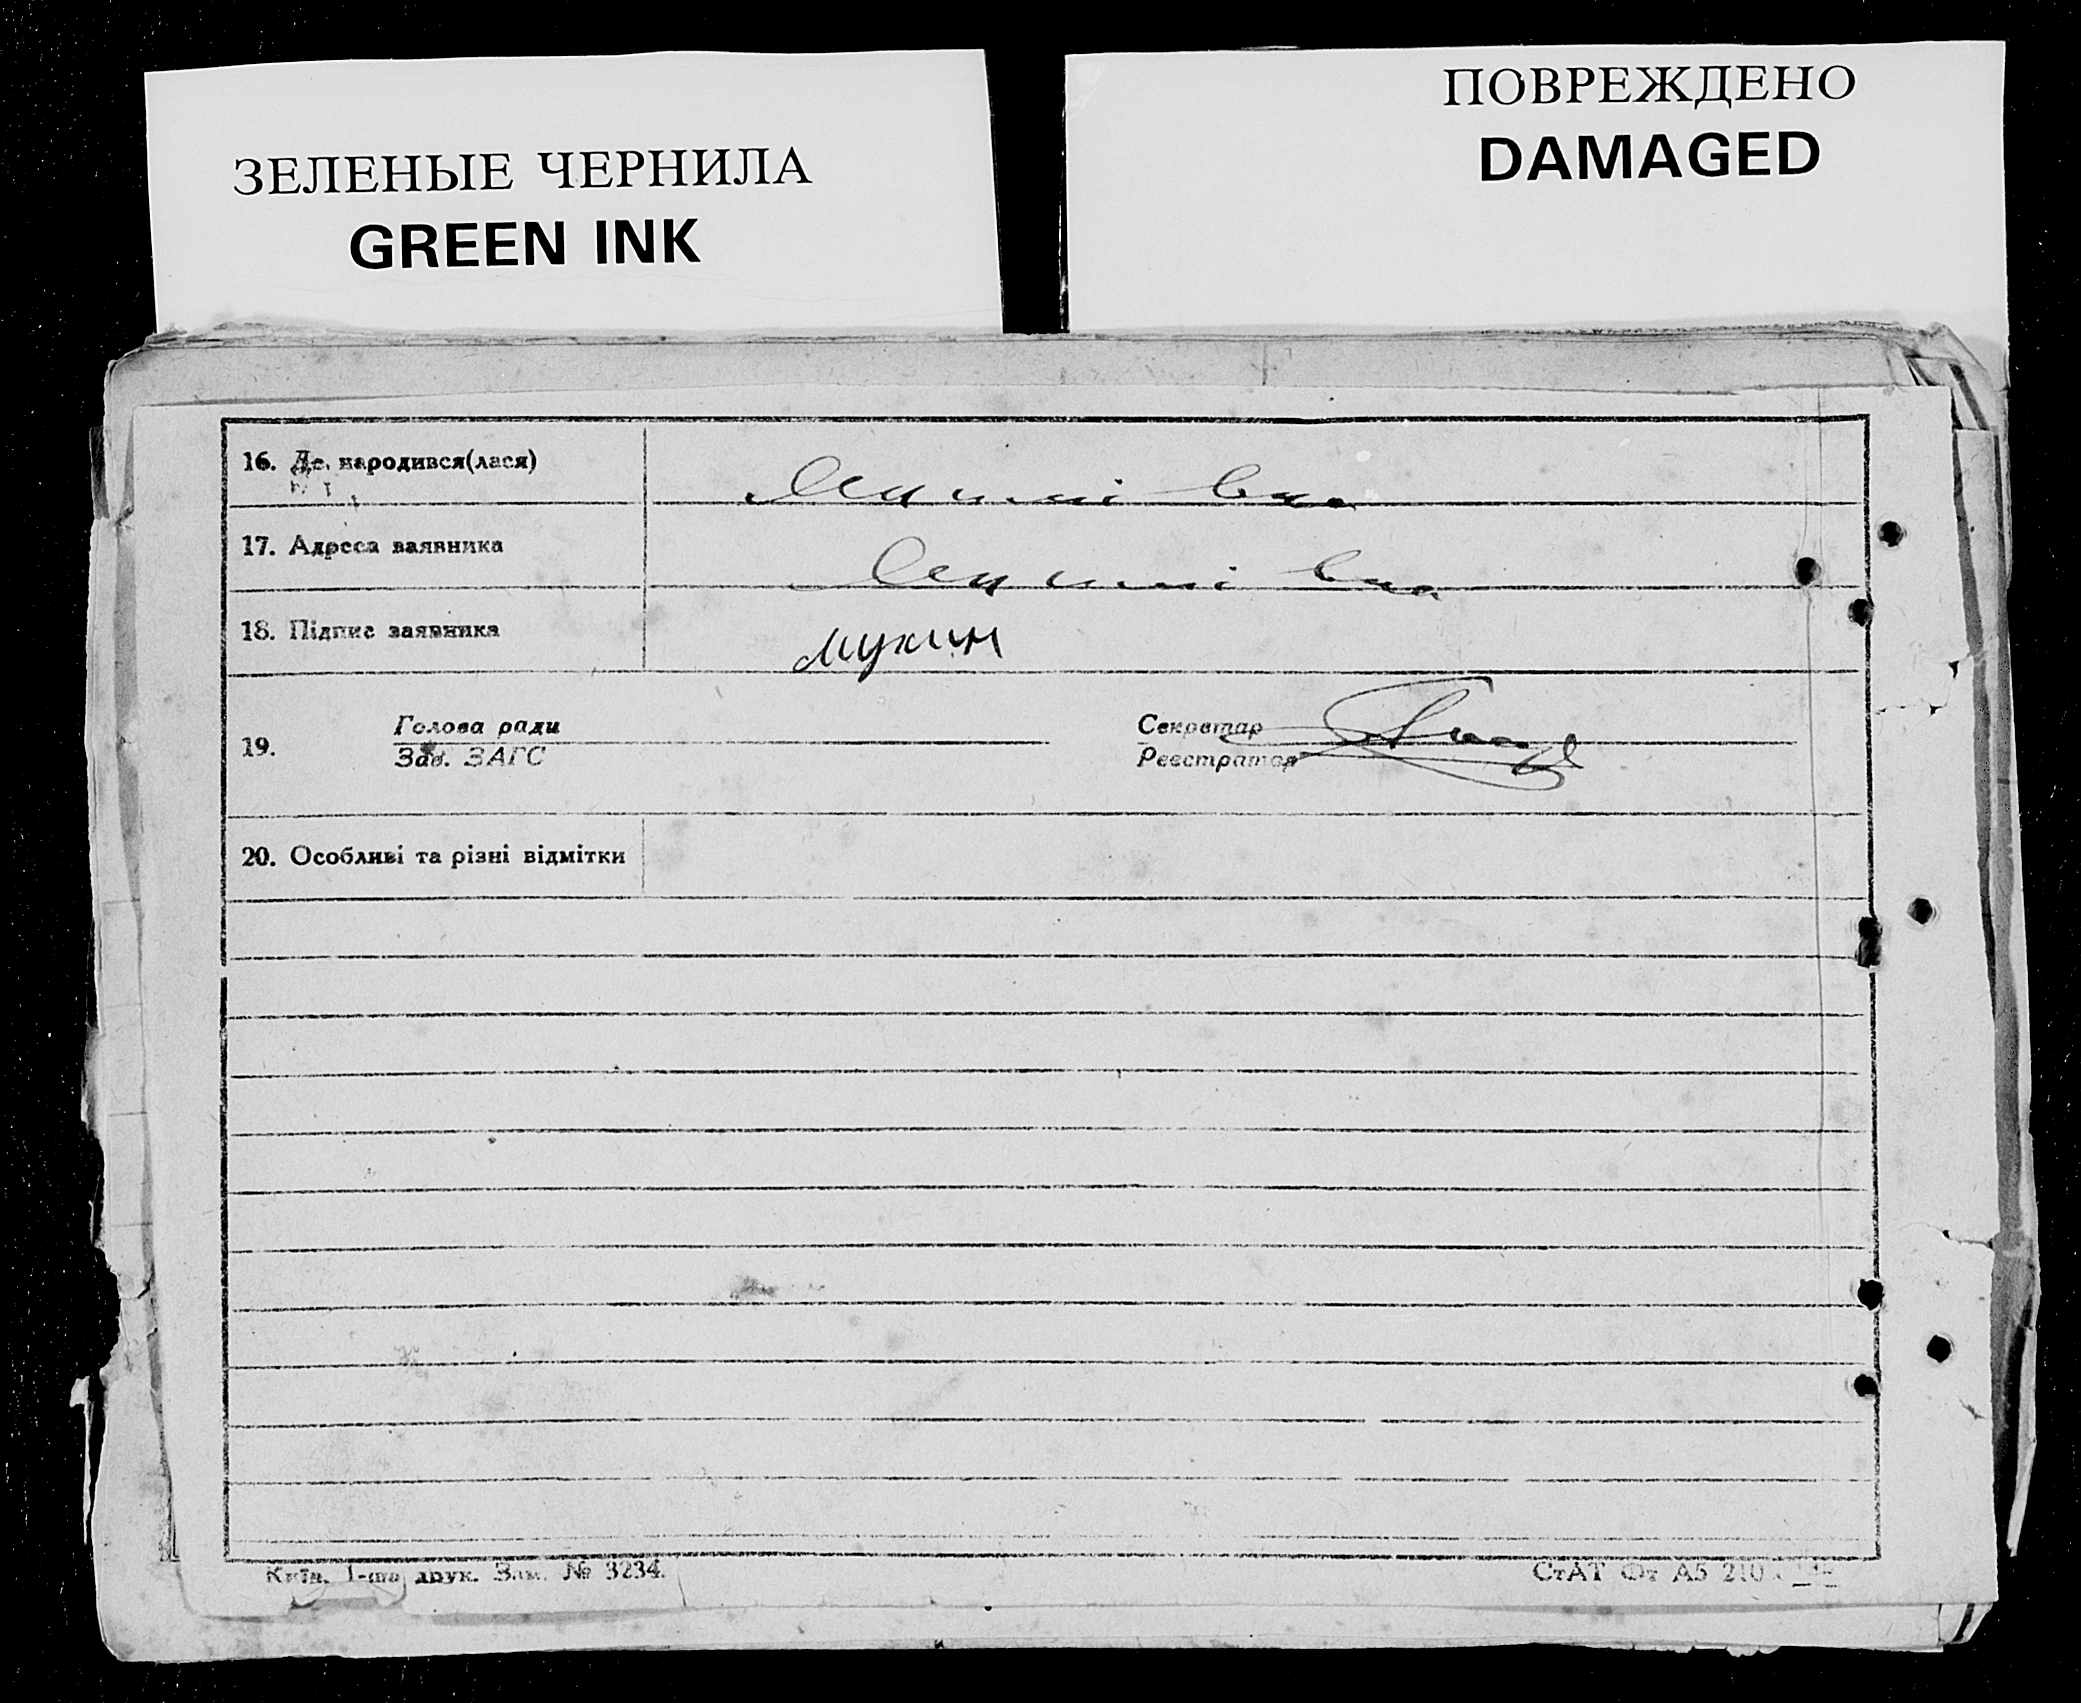 ЗЕЛЕНЫЕ ЧЕРНИЛА
GREEN INK
ПОВРЕЖДЕНО
DAMAGED
16. Де народився(лася)
17. Адреса заявника
18. Підпис заявника
19. Голова ради
Зав. ЗАГС
Секретар
Реєстратор
20. Особливі та різні відмітки
Київ. 1-ша друк. Зам. № 3234.
СтАТ От А5 210